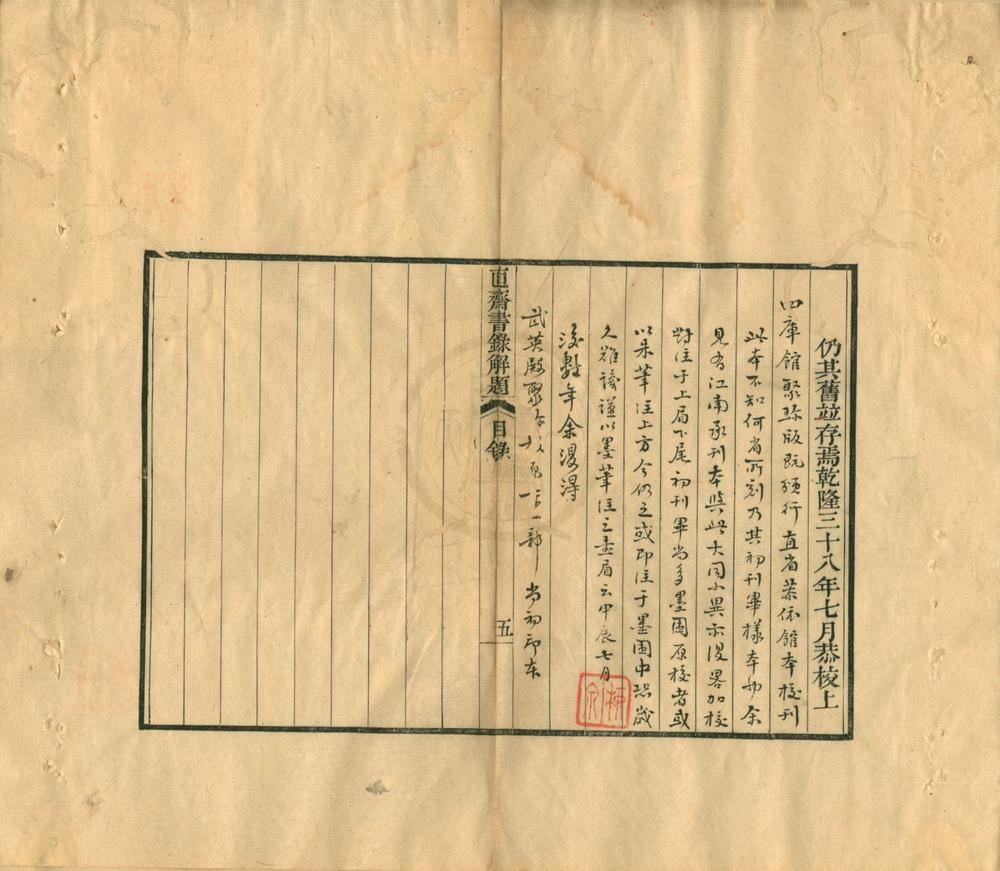 仍其舊並存焉乾隆三十八年七月恭校上
四庫館聚珍版既頒行直省恭依館本校刊
此本不知何省所刻乃其初刊畢樣本也余
見有江南承刊本與此大同小異亦復略加校
對注于上眉下尾初刊畢尚多墨圍原校者或
以朱筆注上方今仍之或即注于墨圍中恐歲
久難識謹以墨筆注之書眉云甲辰七月
後數年余復得
武英殿聚珍一部尚初印本
直齋書錄解題
目錄
五